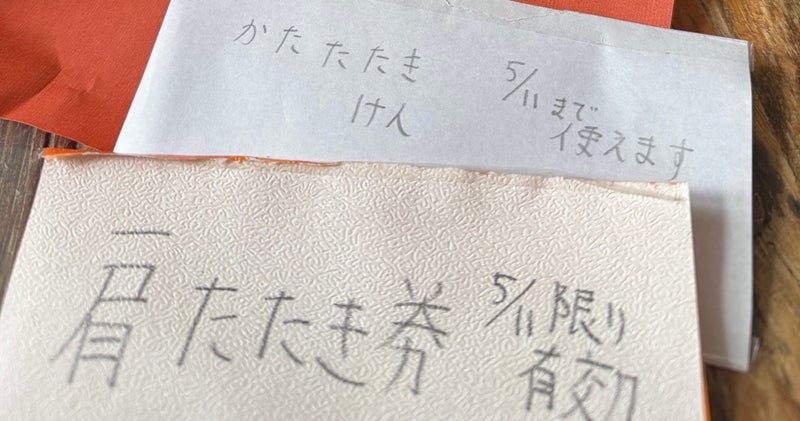 かたたたき
けん
5/11まで
使えます
肩たたき券
5/11限り
有効